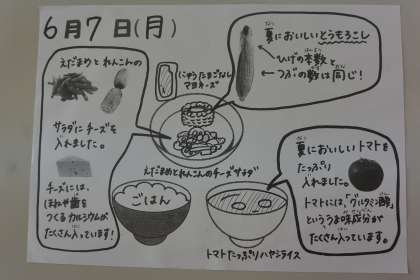 6月7日(月)
えだまめとれんこんの
サラダにチーズを
入れました。
チーズには、
ほねや歯を
つくるカルシウムが
たくさん入っています!
にゅうたまごなし
マヨネーズ
夏においしいとうもろこし
ひげの本数と
つぶの数は同じ!
えだまめとれんこんのチーズサラダ
ごはん
トマトたっぷりハヤシライス
夏においしいトマトを
たっぷり
入れました。
トマトには、「グルタミン酸」
といううま味成分が
たくさん入っています。